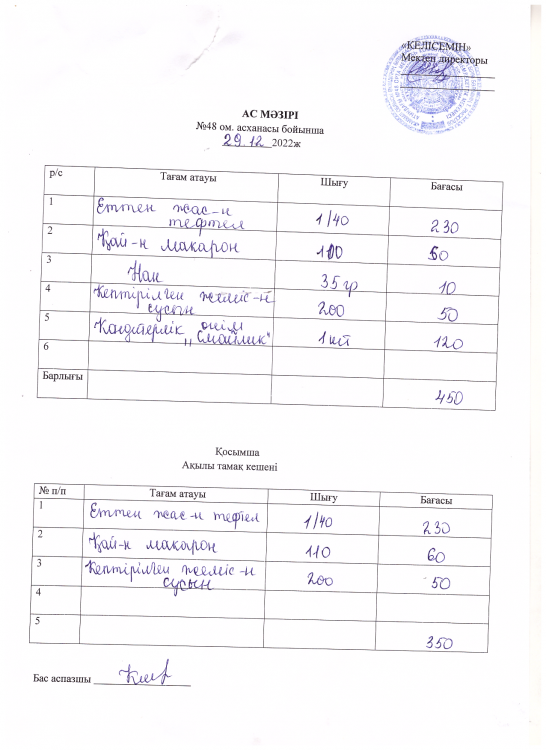 «КЕЛІСЕМІН»
Мектеп директоры
АС МӘЗІРІ
№48 ом. асханасы бойынша
29.12 2022ж
р/с Тағам атауы Шығу Бағасы
1 Еттен жас-н тефтел 1/40 230
2 Қай-н макарон 110 60
3 Нан 35 гр 10
4 Кептірілген жеміс-н сусын 200 50
5 Кондитерлік өнім „Смайлик" 1 шт 120
6
Барлығы 450
Қосымша
Ақылы тамақ кешені
№ п/п Тағам атауы Шығу Бағасы
1 Еттен жас-н тефтел 1/40 230
2 Қай-н макарон 110 60
3 Кептірілген жеміс-н сусын 200 50
4
5 350
Бас аспазшы